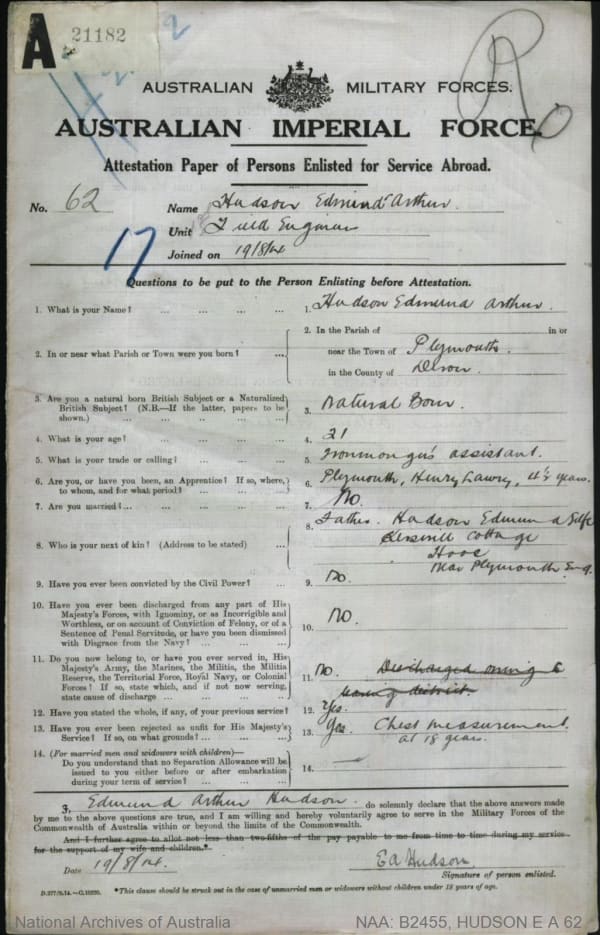 A 21182
AUSTRALIAN MILITARY FORCES.
AUSTRALIAN IMPERIAL FORCE.
Attestation Paper of Persons Enlisted for Service Abroad.
No. 62 Name Hudson Edmund Arthur.
Unit Field Engineers
Joined on 19/8/14
17
Questions to be put to the Person Enlisting before Attestation.
1. What is your Name? ... ... ... ... 1. Hudson Edmund Arthur.
2. In the Parish of in or
2. In or near what Parish or Town were you born? ... near the Town of Plymouth.
in the County of Devon.
3. Are you a natural born British Subject or a Naturalized
British Subject? (N.B.—If the latter, papers to be
shown.) ... ... ... ... ... 3. Natural Born.
4. What is your age? ... ... ... ... 4. 21
5. What is your trade or calling? ... ... ... 5. Ironmonger's assistant.
6. Are you, or have you been, an Apprentice? If so, where,
to whom, and for what period? ... ... ... 6. Plymouth, Henry Lawry, 4½ years.
7. Are you married? ... ... ... ... 7. No.
8. Who is your next of kin? (Address to be stated) ... 8. Father. Hudson Edmund
Cottage
Hooe
Near Plymouth Eng.
9. Have you ever been convicted by the Civil Power? ... 9. No.
10. Have you ever been discharged from any part of His
Majesty's Forces, with Ignominy, or as Incorrigible and
Worthless, or on account of Conviction of Felony, or of a
Sentence of Penal Servitude, or have you been dismissed
with Disgrace from the Navy? ... ... ... 10. No.
11. Do you now belong to, or have you ever served in, His
Majesty's Army, the Marines, the Militia, the Militia
Reserve, the Territorial Force, Royal Navy, or Colonial
Forces? If so, state which, and if not now serving,
state cause of discharge ... ... ... 11. No. Discharged owing to
leaving district.
12. Have you stated the whole, if any, of your previous service? 12. Yes.
13. Have you ever been rejected as unfit for His Majesty's
Service? If so, on what grounds? ... ... ... 13. Yes. Chest measurement.
at 18 years.
14. (For married men and widowers with children)—
Do you understand that no Separation Allowance will be
issued to you either before or after embarkation
during your term of service? ... ... ... 14. —
I, Edmund Arthur Hudson. do solemnly declare that the above answers made
by me to the above questions are true, and I am willing and hereby voluntarily agree to serve in the Military Forces of the
Commonwealth of Australia within or beyond the limits of the Commonwealth.
And I further agree to allot not less than two-fifths of the pay payable to me from time to time during my service
for the support of my wife and children.*
Date 19/8/14. E A Hudson.
Signature of person enlisted.
D.277/8.14.—C.10520. *This clause should be struck out in the case of unmarried men or widowers without children under 18 years of age.
National Archives of Australia NAA: B2455, HUDSON E A 62